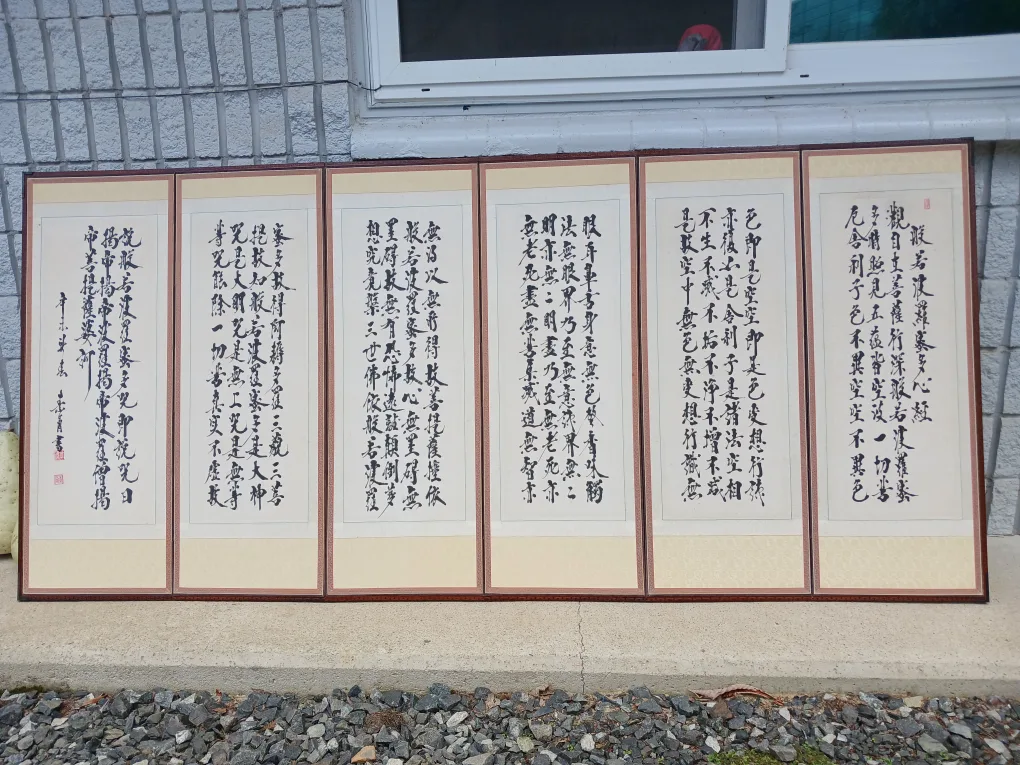 般若波羅蜜多心經
觀自在菩薩行深般若波羅蜜
多時照見五蘊皆空度一切苦
厄舍利子色不異空空不異色
色即是空空即是色受想行識
亦復如是舍利子是諸法空相
不生不滅不垢不淨不增不減
是故空中無色無受想行識無
眼耳鼻舌身意無色聲香味觸
法無眼界乃至無意識界無〻
明亦無〻明盡乃至無老死亦
無老死盡無苦集滅道無智亦
無得以無所得故菩提薩埵依
般若波羅蜜多故心無罣碍無
罣碍故無有恐怖遠離顛倒夢
想究竟槃三世佛依般若波羅
蜜多故得阿耨多羅三藐三菩
提故知般若波羅蜜多是大神
咒是大明咒是無上咒是無等
等咒能除一切苦真實不虛故
說般若波羅蜜多咒即說咒曰
揭帝揭帝波羅揭帝波羅僧揭
帝菩提薩婆訶
辛未年春 書